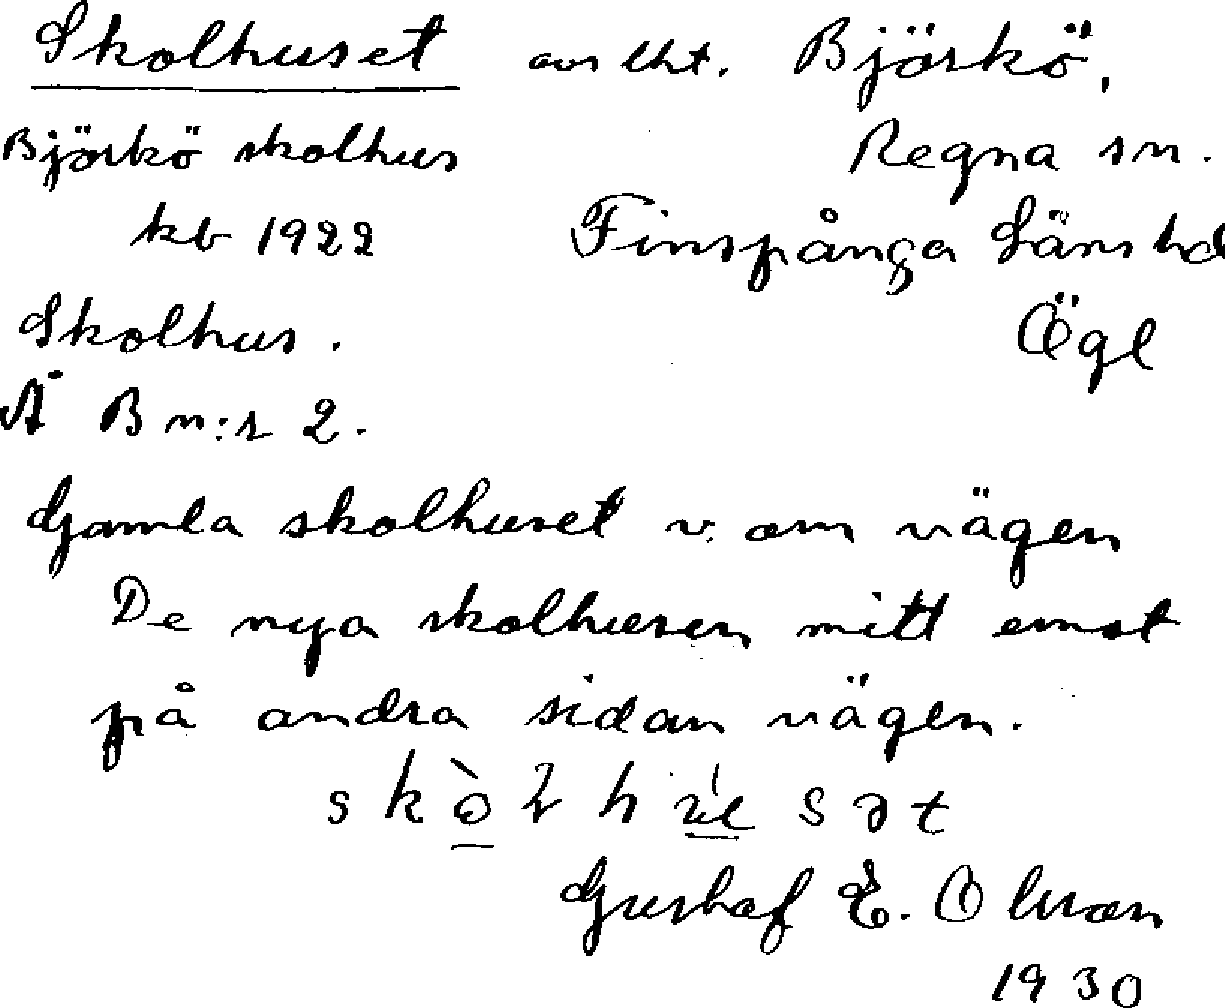 Skolhuset avs lht. Björkö,
Björkö skolhus Regna sn.
kb 1922 Finspånga Läns hd
Skolhus. Ögl
Ä B n:r 2.
Gamla skolhuset v. om vägen
De nya skolhusen mitt emot
på andra sidan vägen.
Gustaf E. Olsson
1930